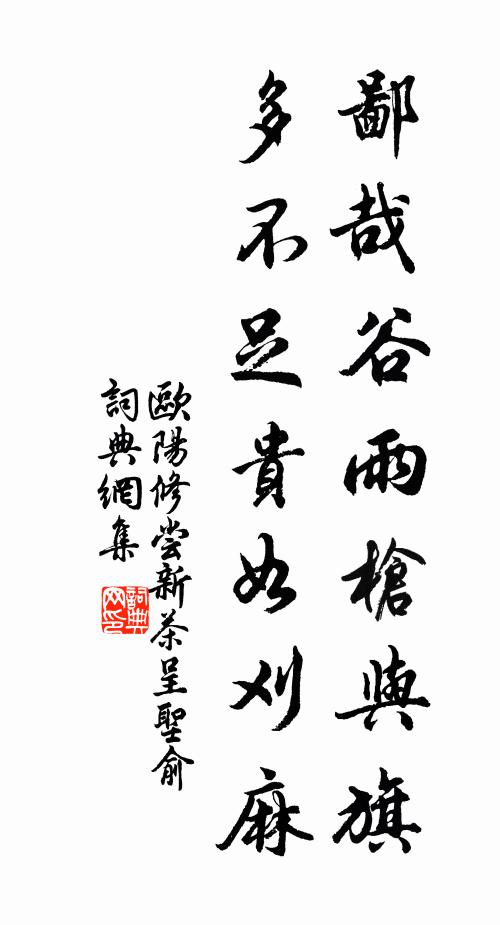 鄙哉谷雨槍與旗
多不足貴如刈麻
歐陽修嘗新茶呈聖俞
詞典網集
詞典网印